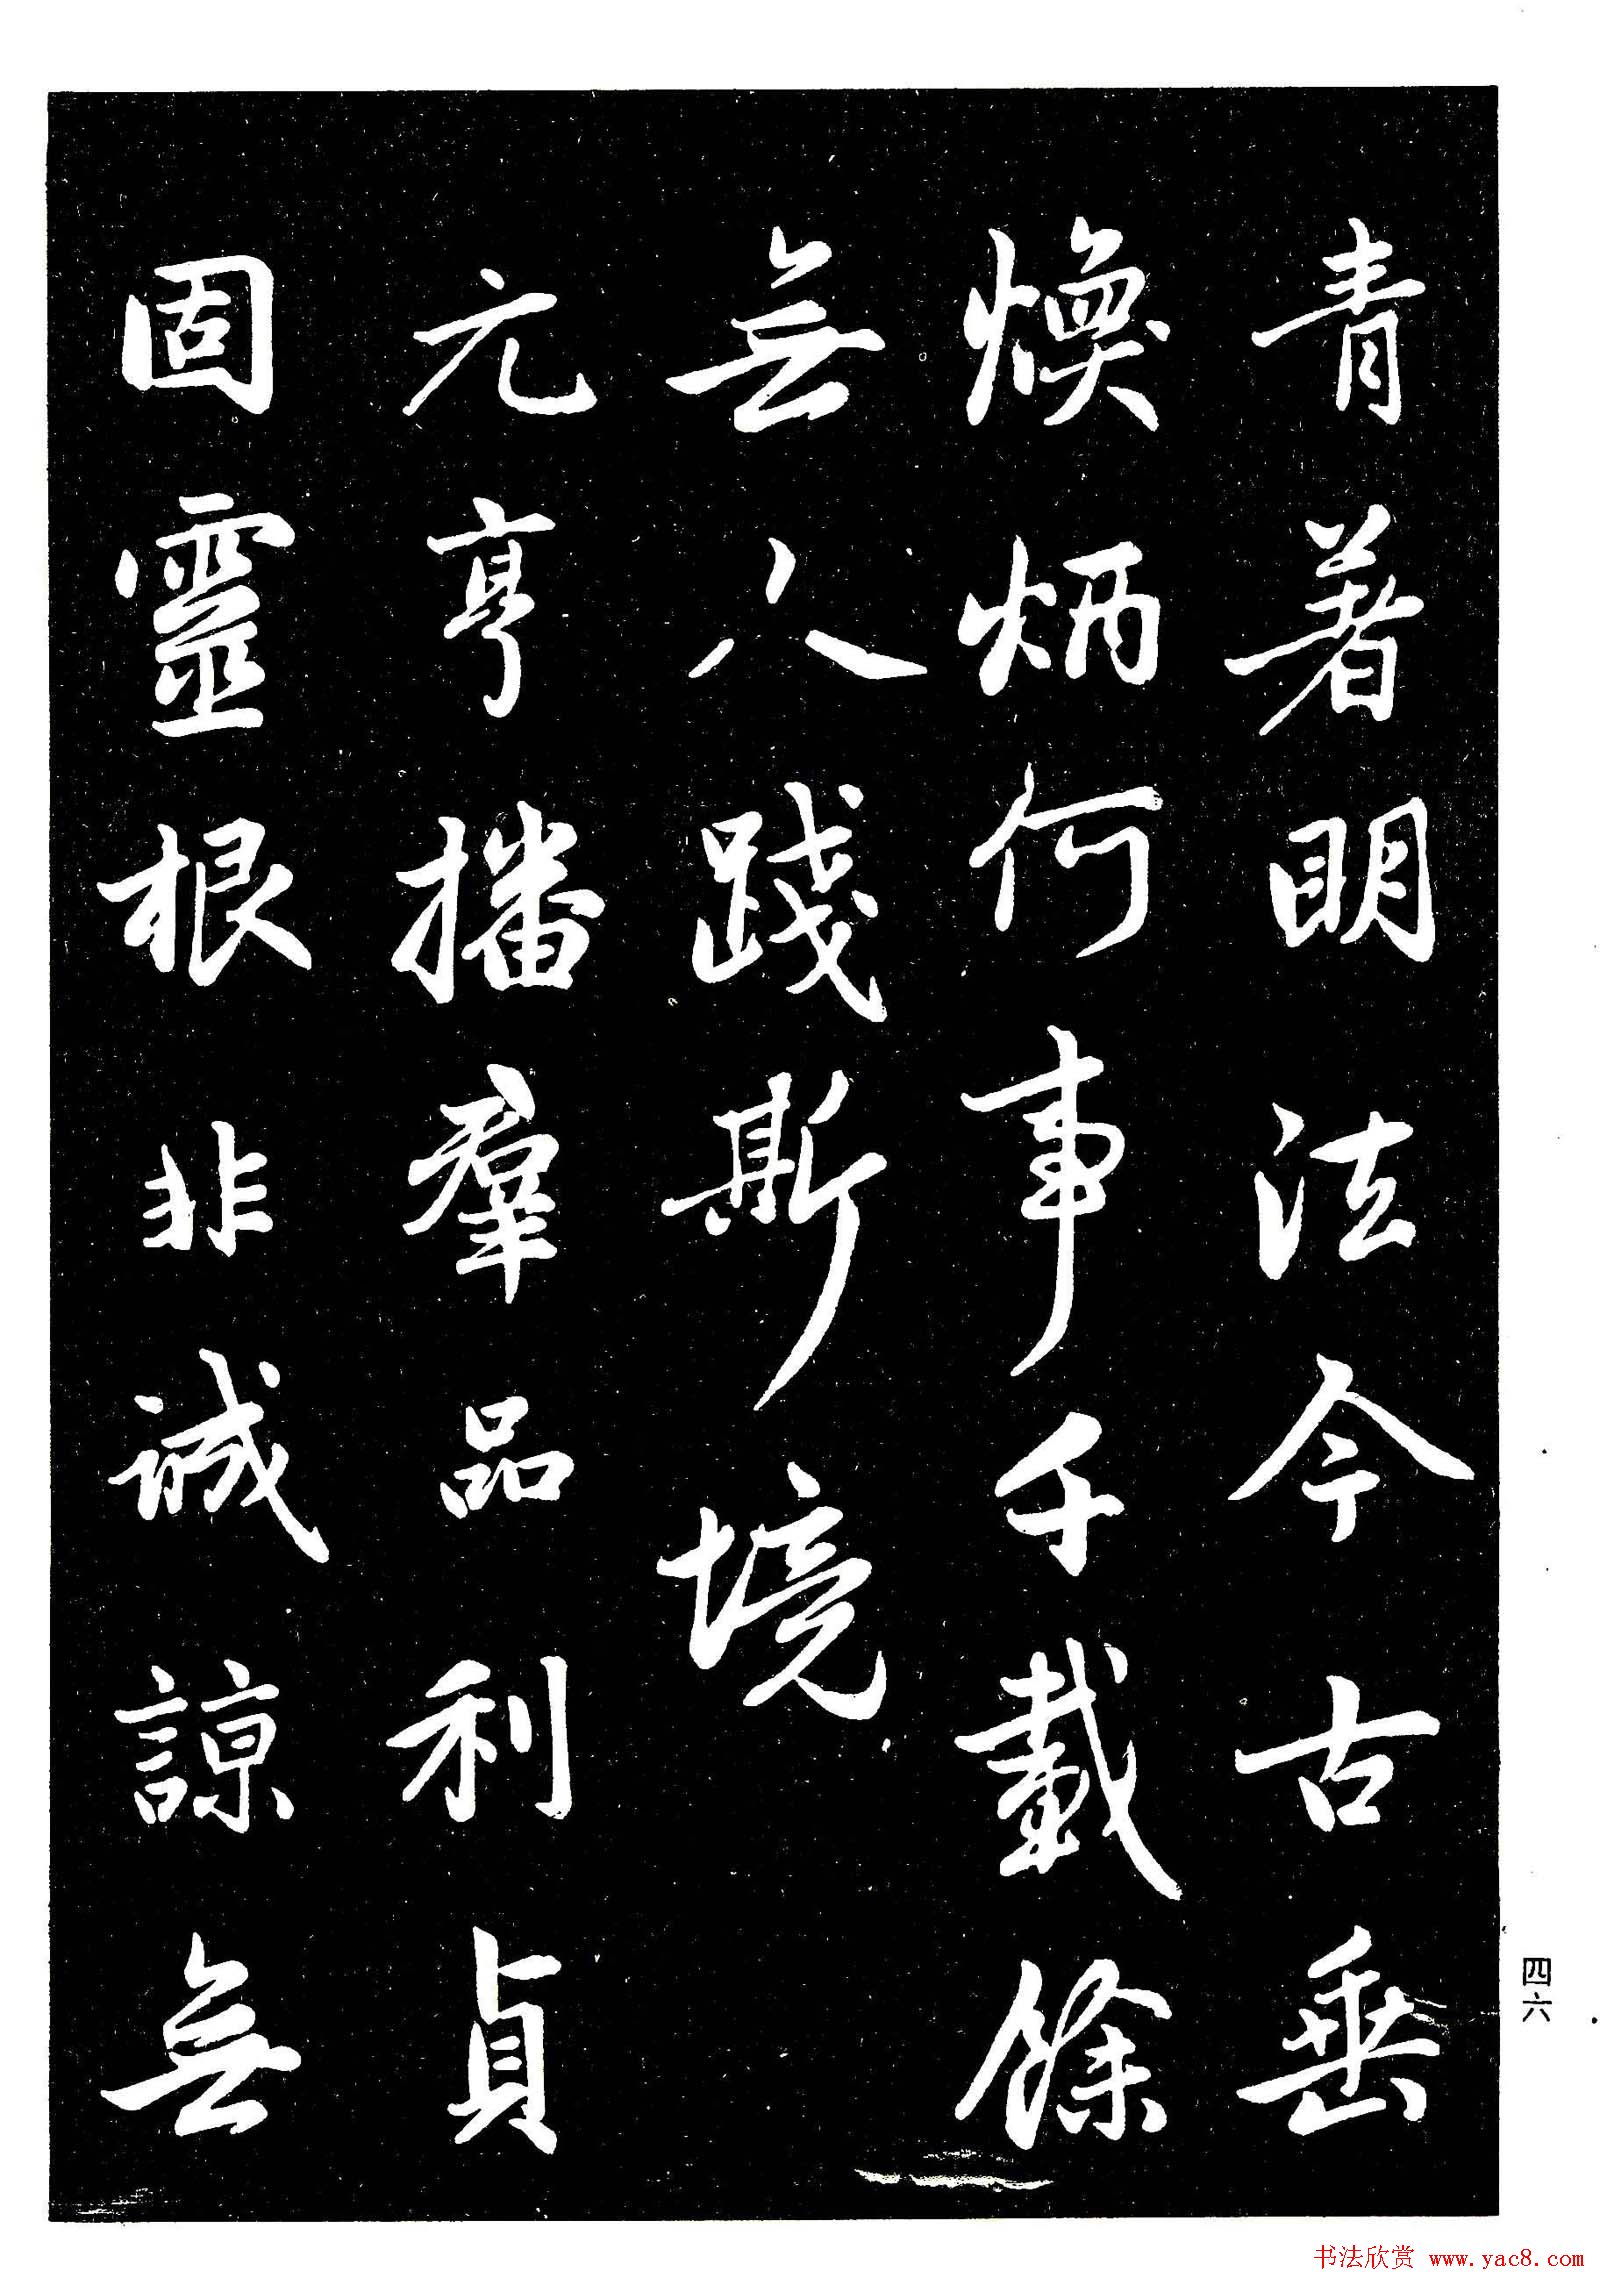 青著明法今古垂
煥炳何事千載餘
無人踐斯境
元亨播羣品利貞
固靈根非誠諒無
四六
书法欣赏 www.yac8.com